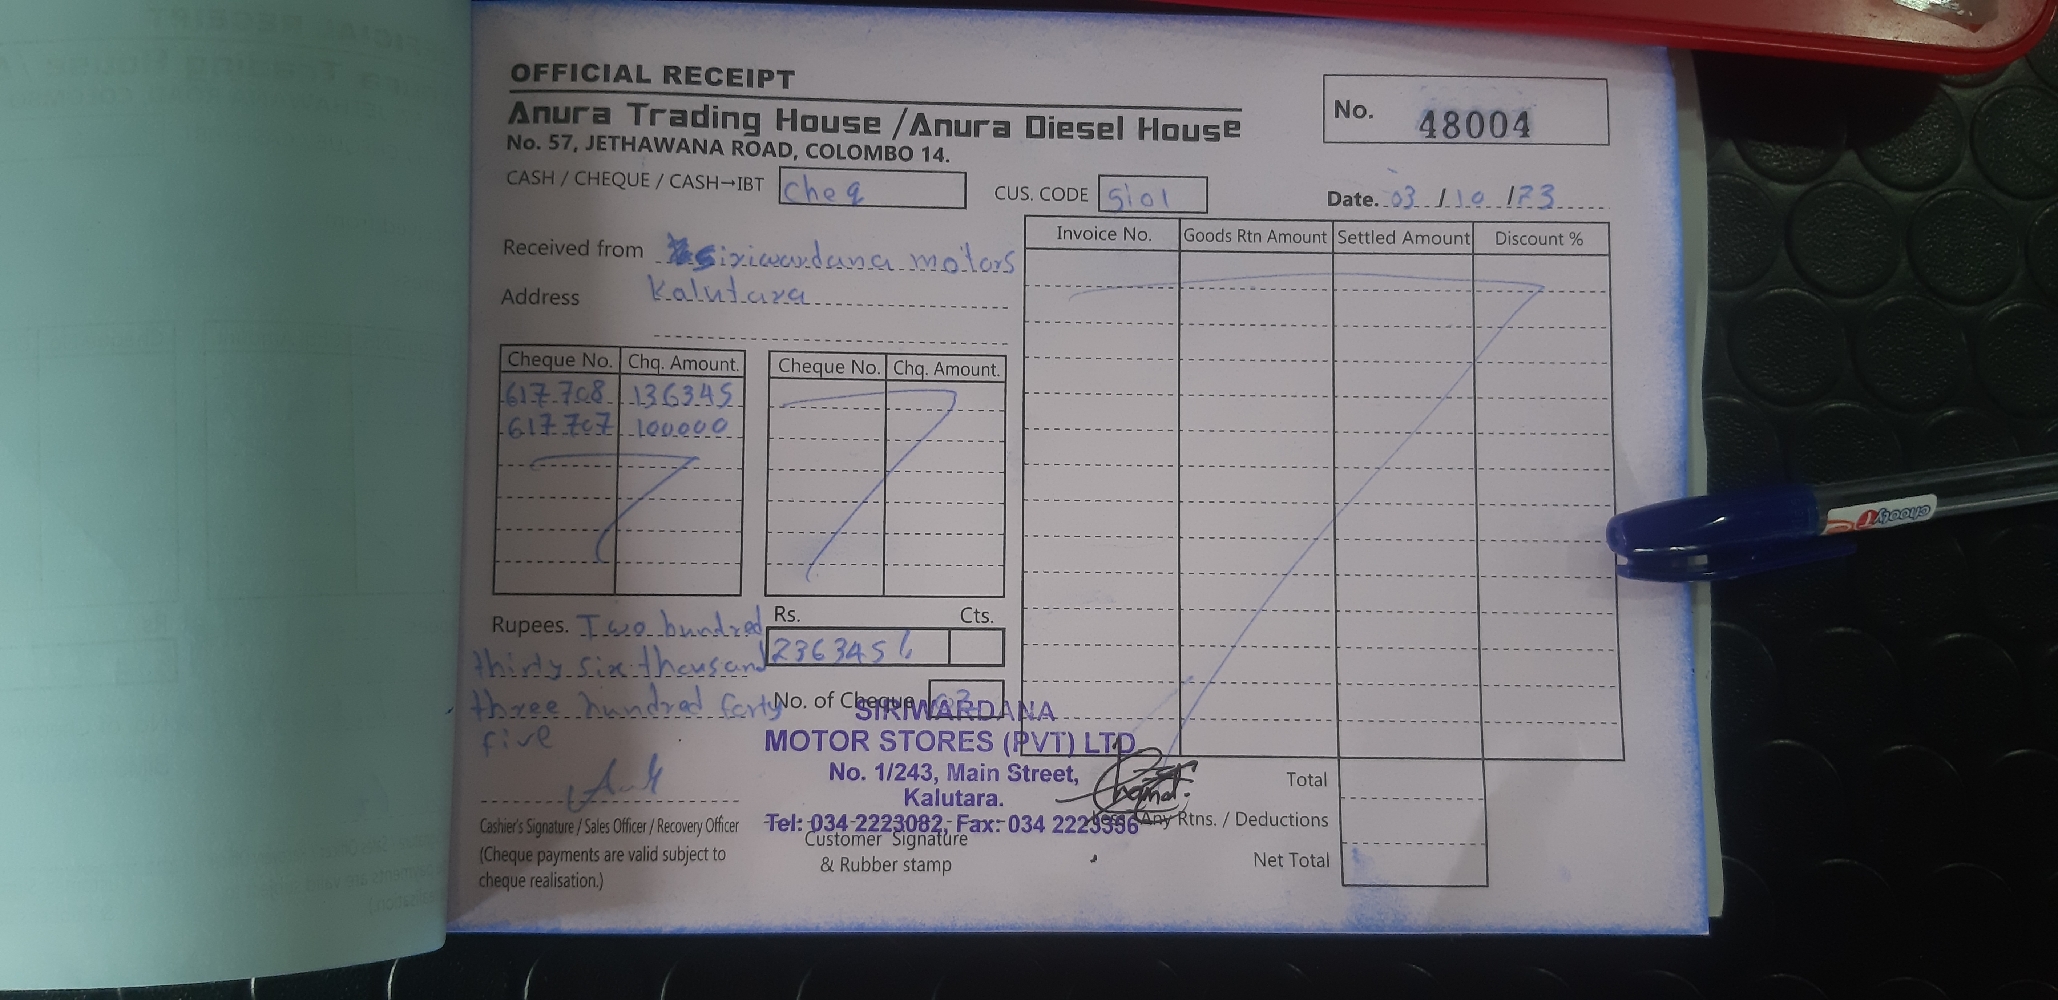 OFFICIAL RECEIPT
Anura Trading House / Anura Diesel House
No. 57, JETHAWANA ROAD, COLOMBO 14.
No. 48004
CASH / CHEQUE / CASH→IBT cheq
CUS. CODE SI01
Date. 03 / 10 / 23
Received from Siriwardana motors
Address Kalutara
Cheque No. Chq. Amount.
617708 136345
617707 100000
Cheque No. Chq. Amount.
Invoice No. Goods Rtn Amount Settled Amount Discount %
Rupees. Two hundred
thirty six thousand
three hundred forty
five
Rs. Cts.
236345/
No. of Cheque 02
SIRIWARDANA
MOTOR STORES (PVT) LTD
No. 1/243, Main Street,
Kalutara.
Tel: 034 2223082, Fax: 034 2229356
Cashier's Signature / Sales Officer / Recovery Officer
(Cheque payments are valid subject to
cheque realisation.)
Customer Signature
& Rubber stamp
Total
Any Rtns. / Deductions
Net Total
chooty